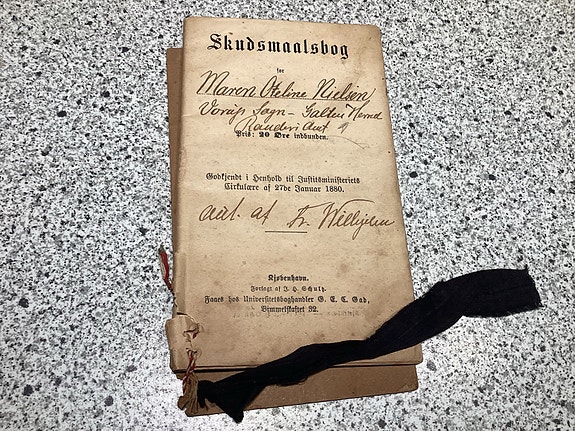 Skudsmaalsbog
for
Maren Oteline Nielsen
Vorup Sogn – Galten Herred
Randers Amt
Pris: 20 Øre indbunden.
Godkjendt i Henhold til Justitsministeriets
Cirkulære af 27de Januar 1880.
aut. af Fr. Wellejus
Kjøbenhavn.
Forlagt af J. H. Schultz.
Faaes hos Universitetsboghandler G. E. C. Gad,
Vimmelskaftet 32.